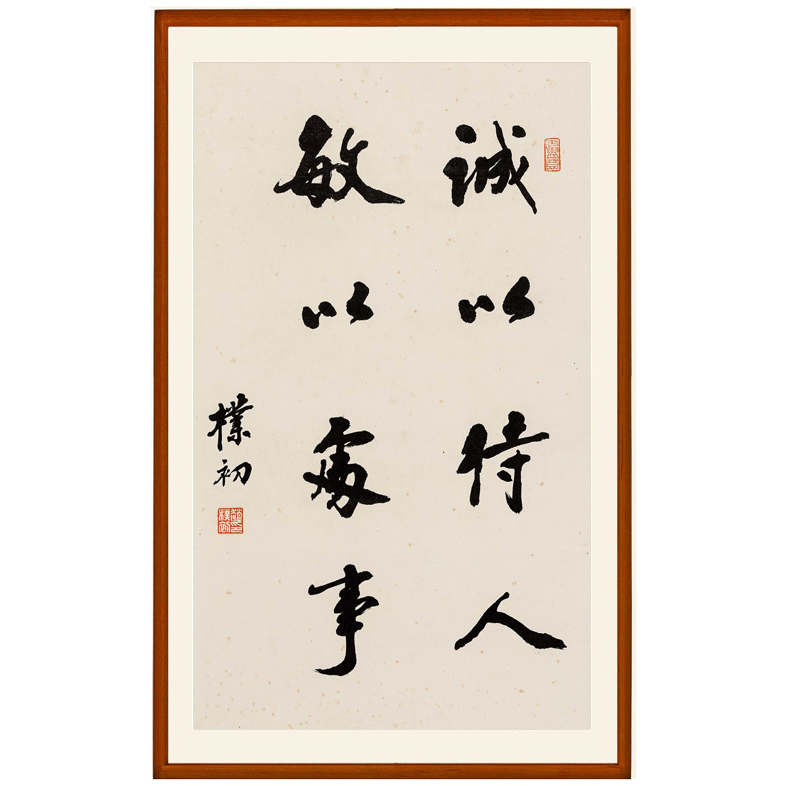 誠以待人
敏以處事
樸初